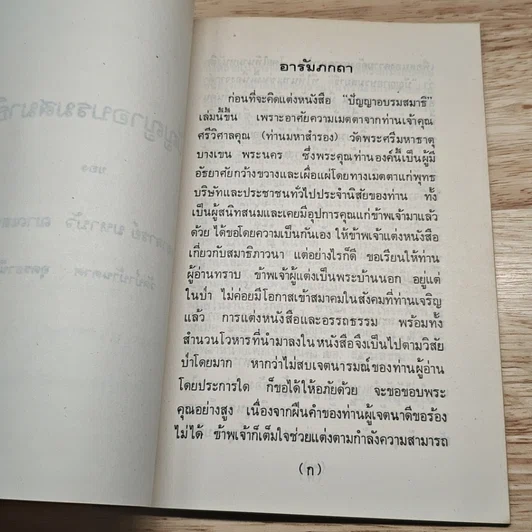 อารัมภกถา
ก่อนที่จะคิดแต่งหนังสือ "ปัญญาอบรมสมาธิ"
เล่มนี้ขึ้น เพราะอาศัยความเมตตาจากท่านเจ้าคุณ
ศรีวิศาลคุณ (ท่านมหาสำรอง) วัดพระศรีมหาธาตุ
บางเขน พระนคร ซึ่งพระคุณท่านองค์นี้เป็นผู้มี
อัธยาศัยกว้างขวางและเผื่อแผ่โดยทางเมตตาแก่พุทธ
บริษัทและประชาชนทั่วไปประจำนิสัยของท่าน ทั้ง
เป็นผู้สนิทสนมและเคยมีอุปการคุณแก่ข้าพเจ้ามาแล้ว
ด้วย ได้ขอโดยความเป็นกันเอง ให้ข้าพเจ้าแต่งหนังสือ
เกี่ยวกับสมาธิภาวนา แต่อย่างไรก็ดี ขอเรียนให้ท่าน
ผู้อ่านทราบ ข้าพเจ้าผู้แต่งเป็นพระบ้านนอก อยู่แต่
ในป่า ไม่ค่อยมีโอกาสเข้าสมาคมในสังคมที่ท่านเจริญ
แล้ว การแต่งหนังสือและอรรถธรรม พร้อมทั้ง
สำนวนโวหารที่นำมาลงในหนังสือจึงเป็นไปตามวิสัย
ป่าโดยมาก หากว่าไม่สบเจตนารมณ์ของท่านผู้อ่าน
โดยประการใด ก็ขอได้ให้อภัยด้วย จะขอขอบพระ
คุณอย่างสูง เนื่องจากฝืนคำของท่านผู้เจตนาดีขอร้อง
ไม่ได้ ข้าพเจ้าก็เต็มใจช่วยแต่งตามกำลังความสามารถ
(ก)